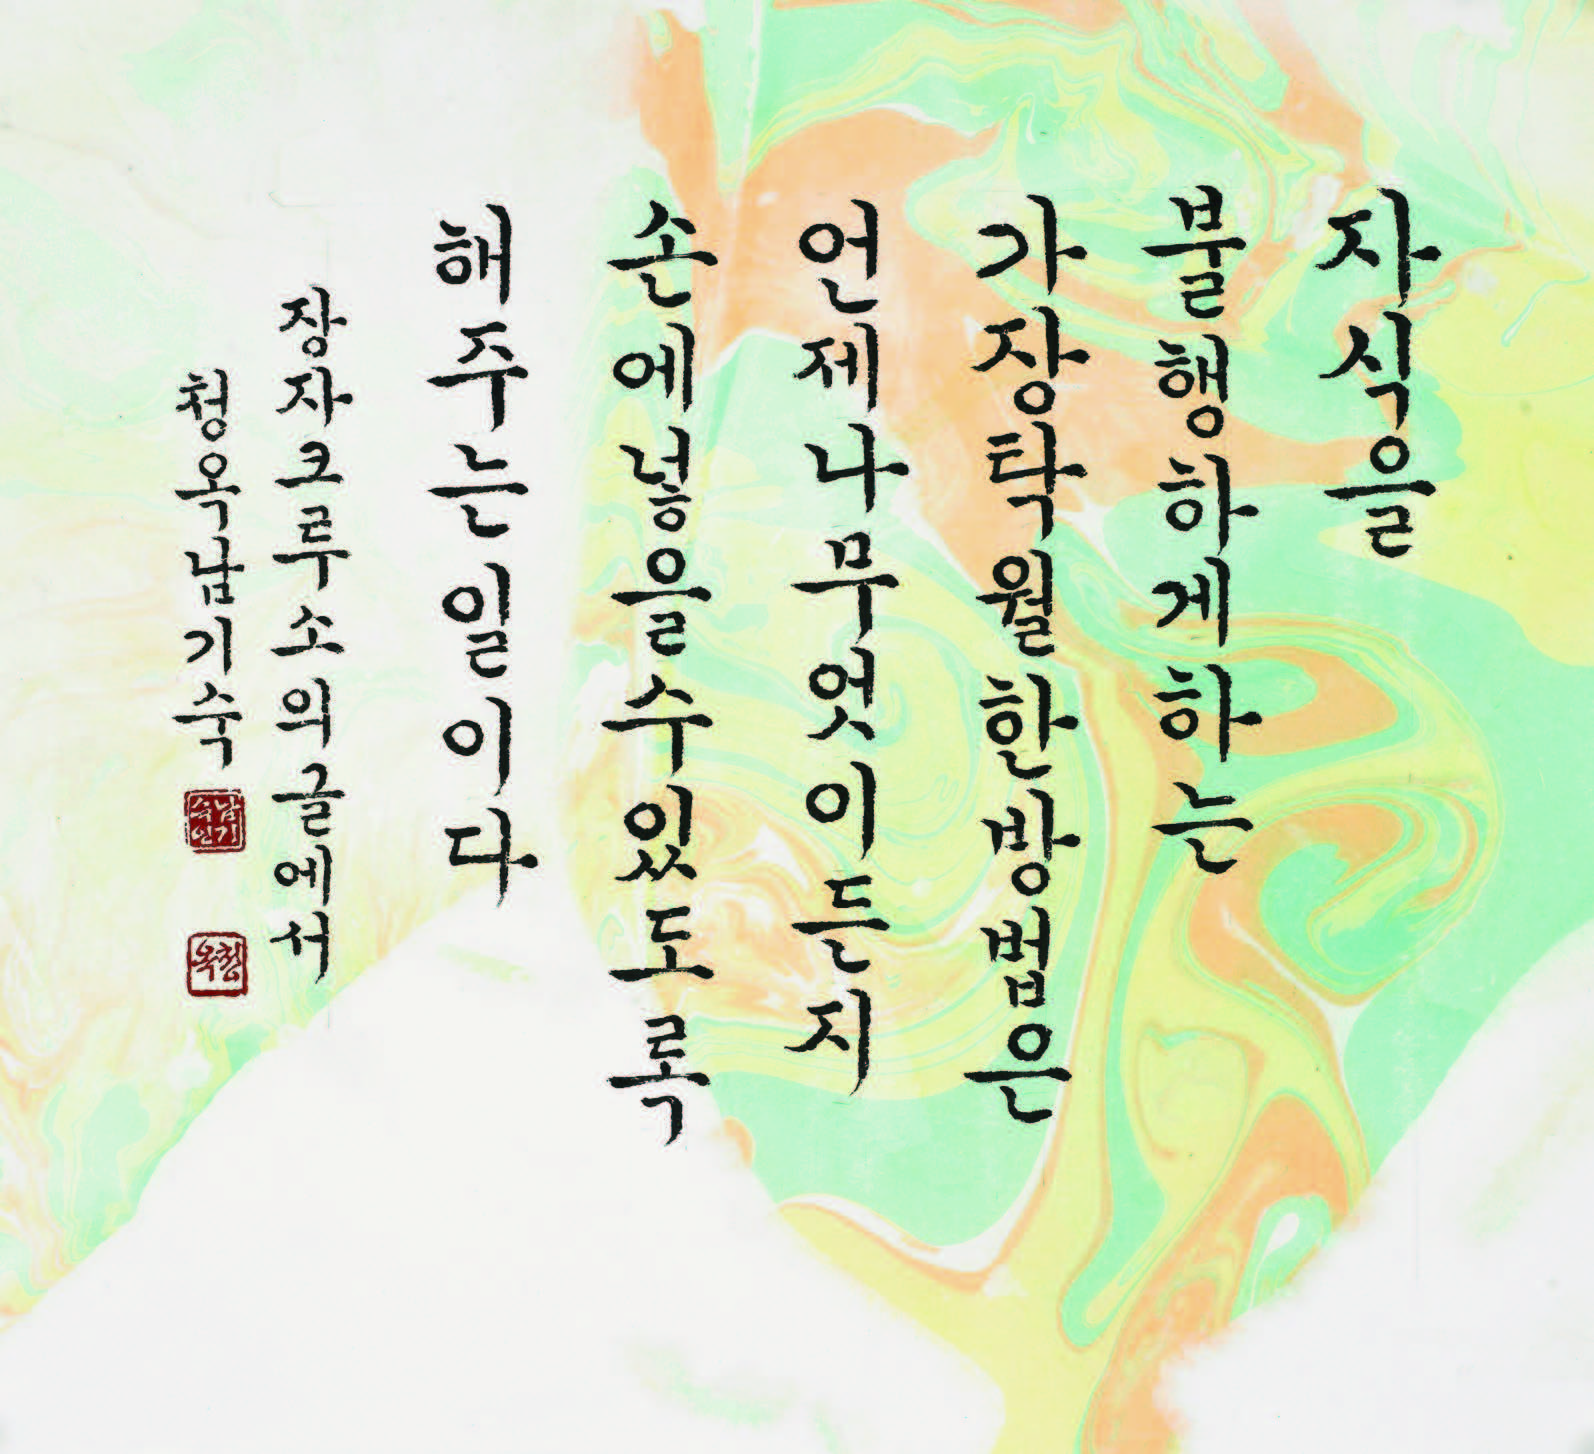 자식을
불행하게하는
가장탁월한방법은
언제나무엇이든지
손에넣을수있도록
해주는일이다
장자크루소의글에서
청옥남기숙
남기숙인
청옥